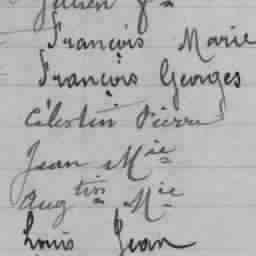 Julien Fˢ
François Marie
François Georges
Célestin Pierre
Jean Mⁱᵉ
Augᵗⁱⁿ Mⁱᵉ
Louis Jean